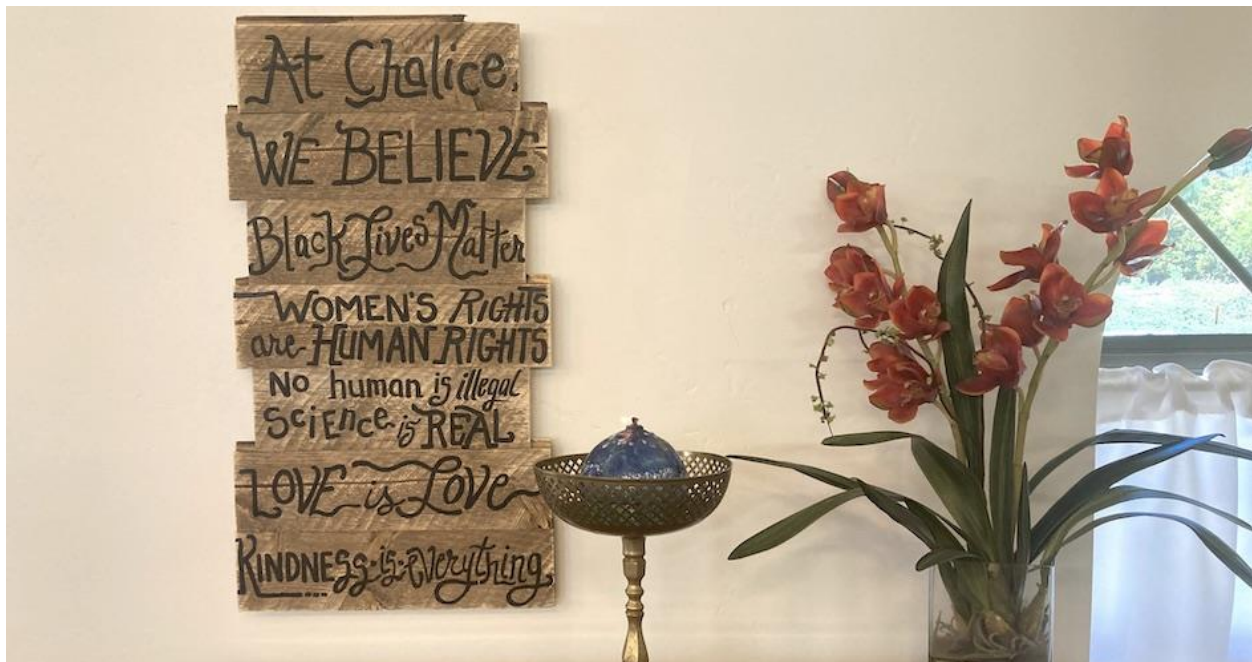 At Chalice,
WE BELIEVE
Black Lives Matter
WOMEN'S RIGHTS
are HUMAN RIGHTS
No human is illegal
SCIENCE is REAL
LOVE is LOVE
KINDNESS is everything